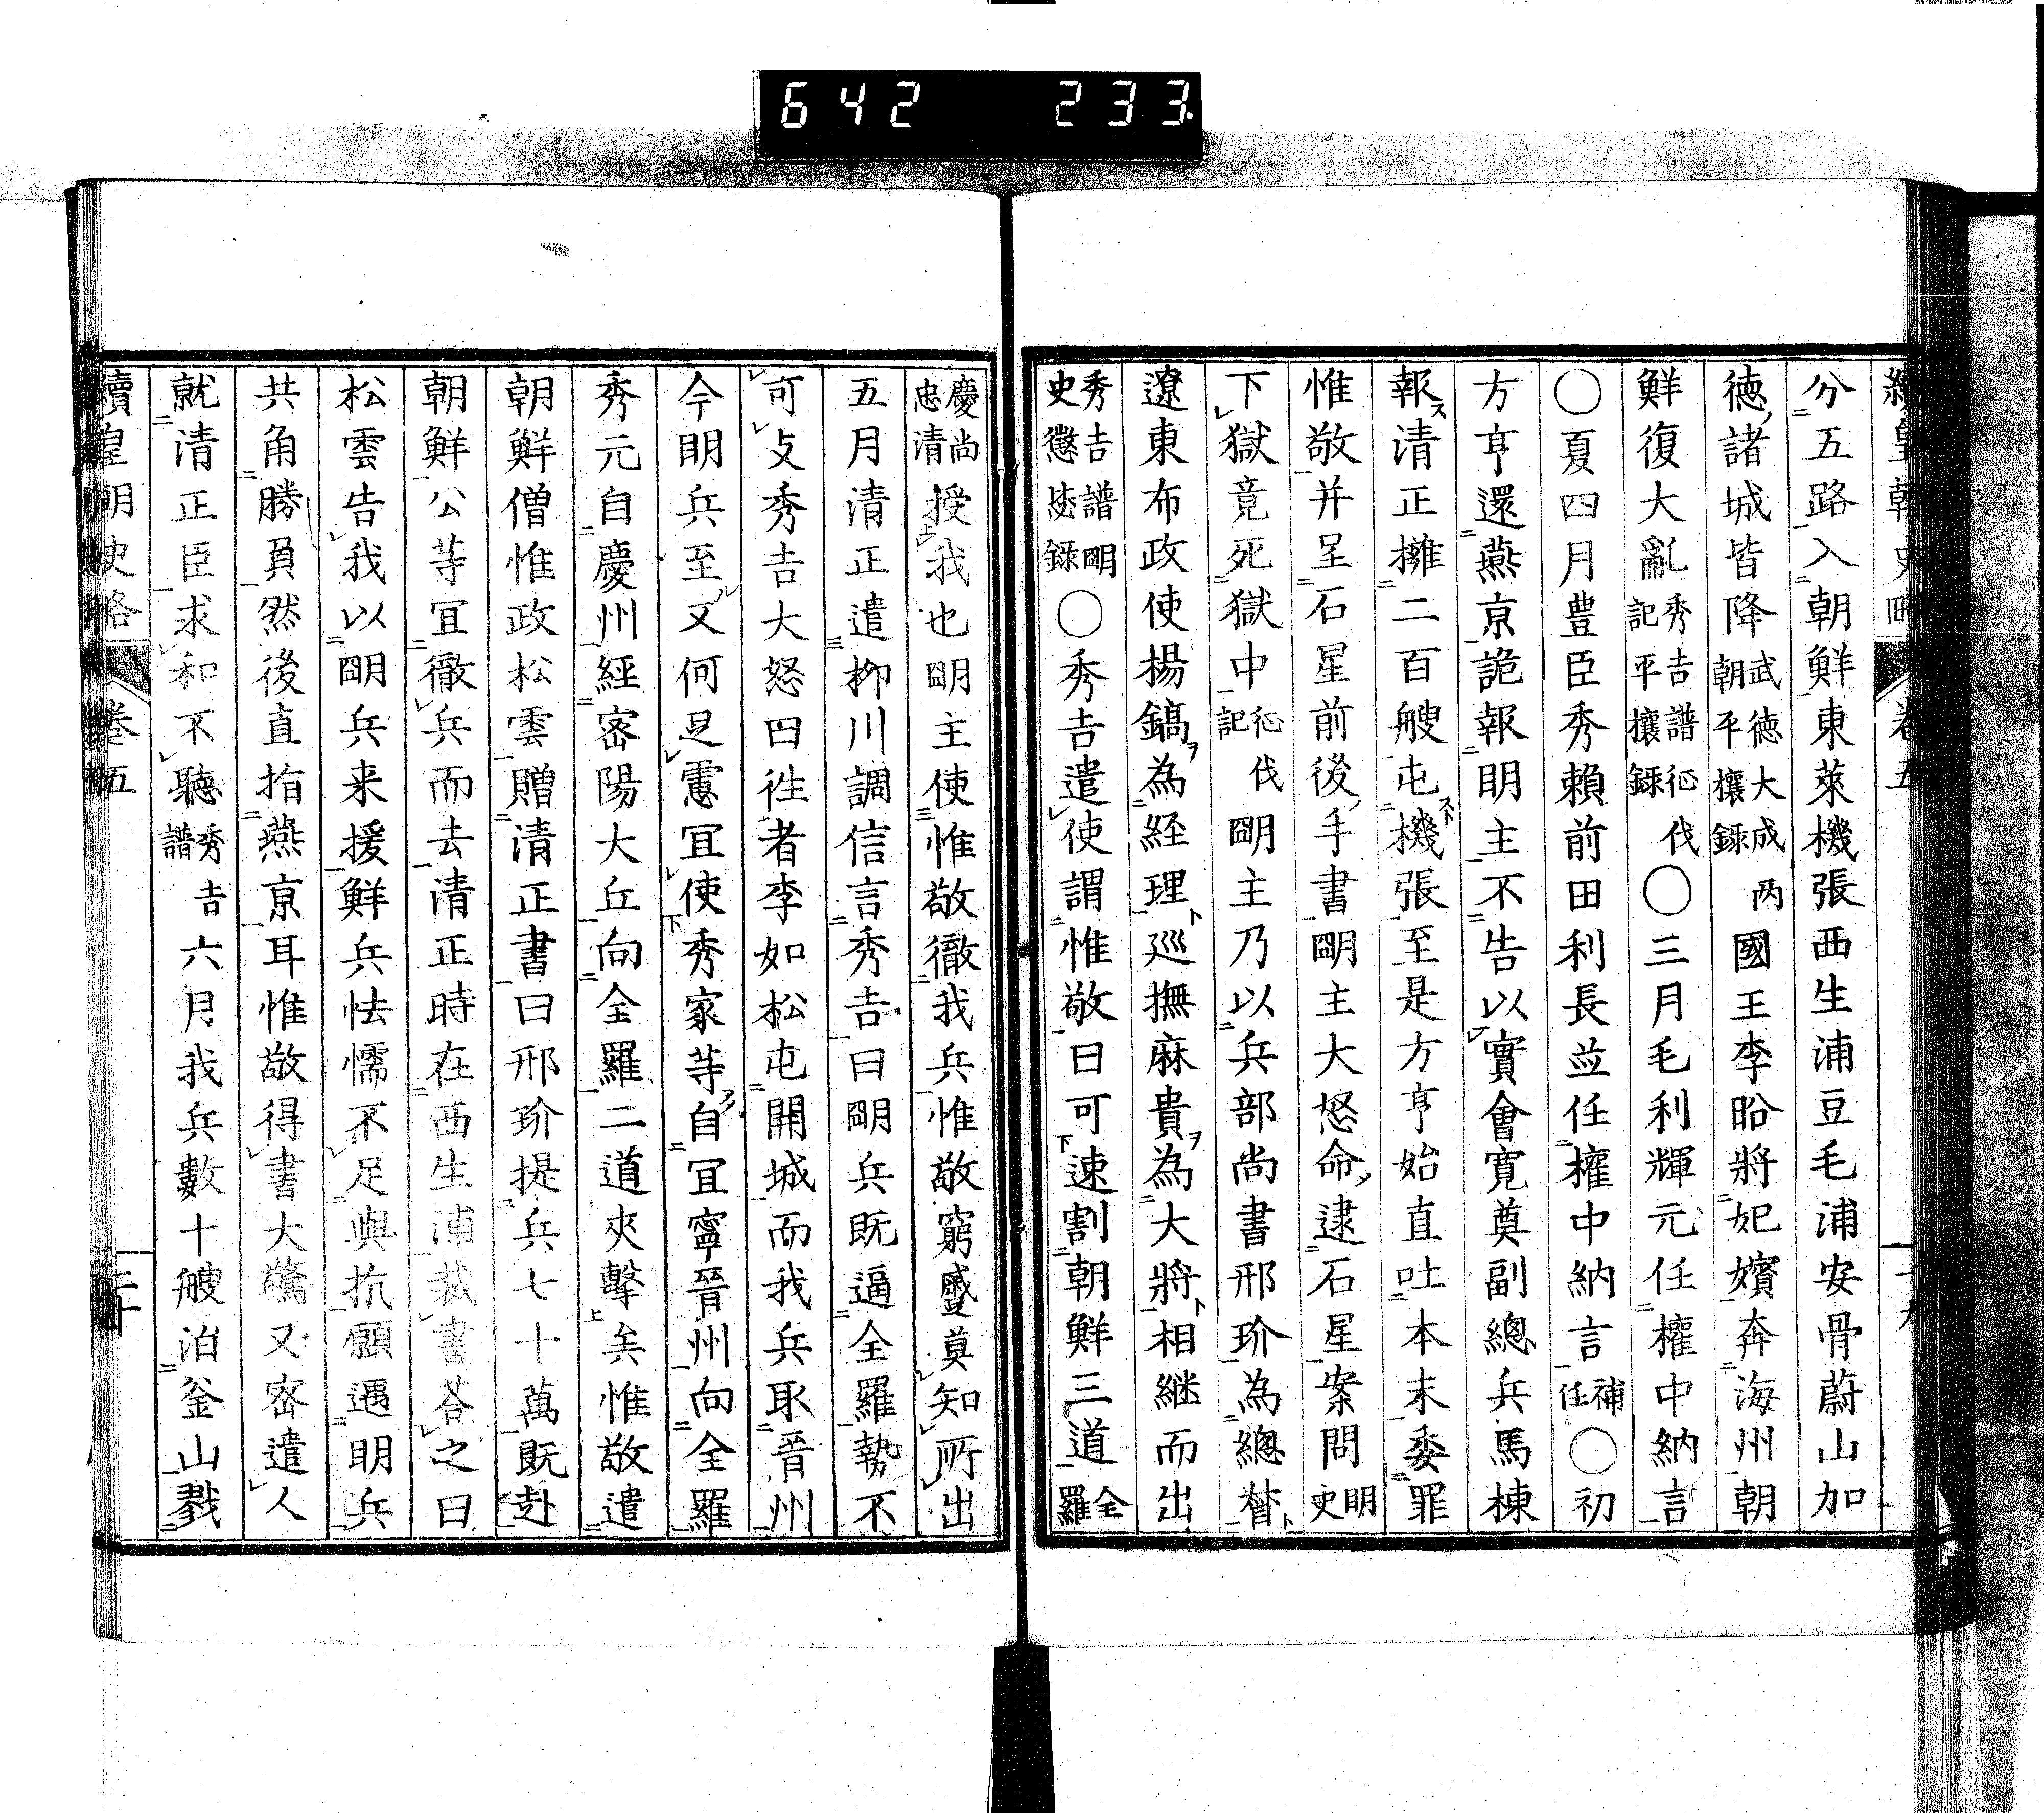 642 233
續皇朝史畧 卷五 十九
分五路入朝鮮東萊機張西生浦豆毛浦安骨蔚山加
徳諸城皆降武徳大成朝平攘錄両國王李昖將妃嬪奔海州朝
鮮復大亂秀吉譜征伐記平攘錄〇三月毛利輝元任權中納言
〇夏四月豊臣秀賴前田利長並任權中納言補任〇初
方亨還燕京詭報明主不告以實會寛奠副總兵馬棟
報清正擁二百艘屯機張至是方亨始直吐本末委罪
惟敬并呈石星前後手書明主大怒命逮石星案問明史
下獄竟死獄中征伐記明主乃以兵部尚書邢玠為總督
遼東布政使楊鎬為経理巡撫麻貴為大將相継而出
秀吉譜明史懲毖錄〇秀吉遣使謂惟敬曰可速割朝鮮三道全羅
慶尚忠清授我也明主使惟敬徹我兵惟敬窮蹙莫知所出
五月清正遣柳川調信言秀吉曰明兵既逼全羅勢不
可攴秀吉大怒曰徃者李如松屯開城而我兵取晋州
今明兵至又何足慮宜使秀家等自宜寧晉州向全羅
秀元自慶州經宻陽大丘向全羅二道夾擊矣惟敬遣
朝鮮僧惟政松雲贈清正書曰邢玠提兵七十萬既赴
朝鮮公等宜徹兵而去清正時在西生浦裁書荅之曰
松雲告我以明兵来援鮮兵怯懦不足與抗願遇明兵
共角勝負然後直指燕京耳惟敬得書大驚又宻遣人
就清正臣求和不聽秀吉譜六月我兵數十艘泊釜山戮
續皇朝史略 卷五 二十